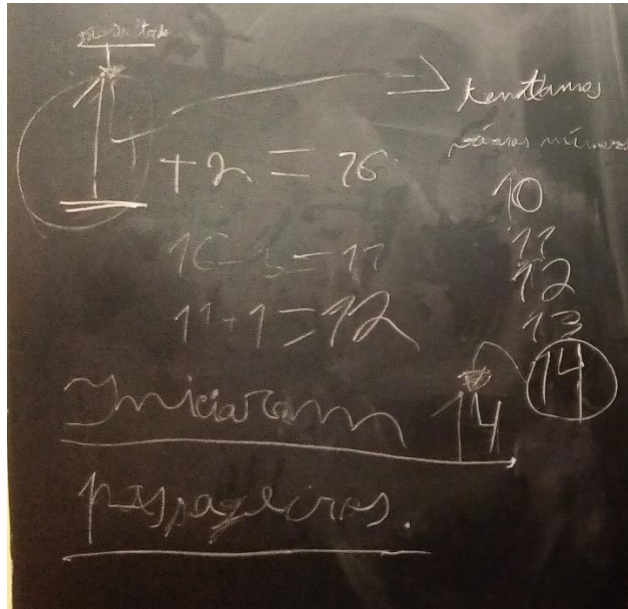 14 + 2 = 16
16 - 5 = 11
11 + 1 = 12
Iniciaram 14
passageiros.
tentamos
vários números
10
11
12
13
14